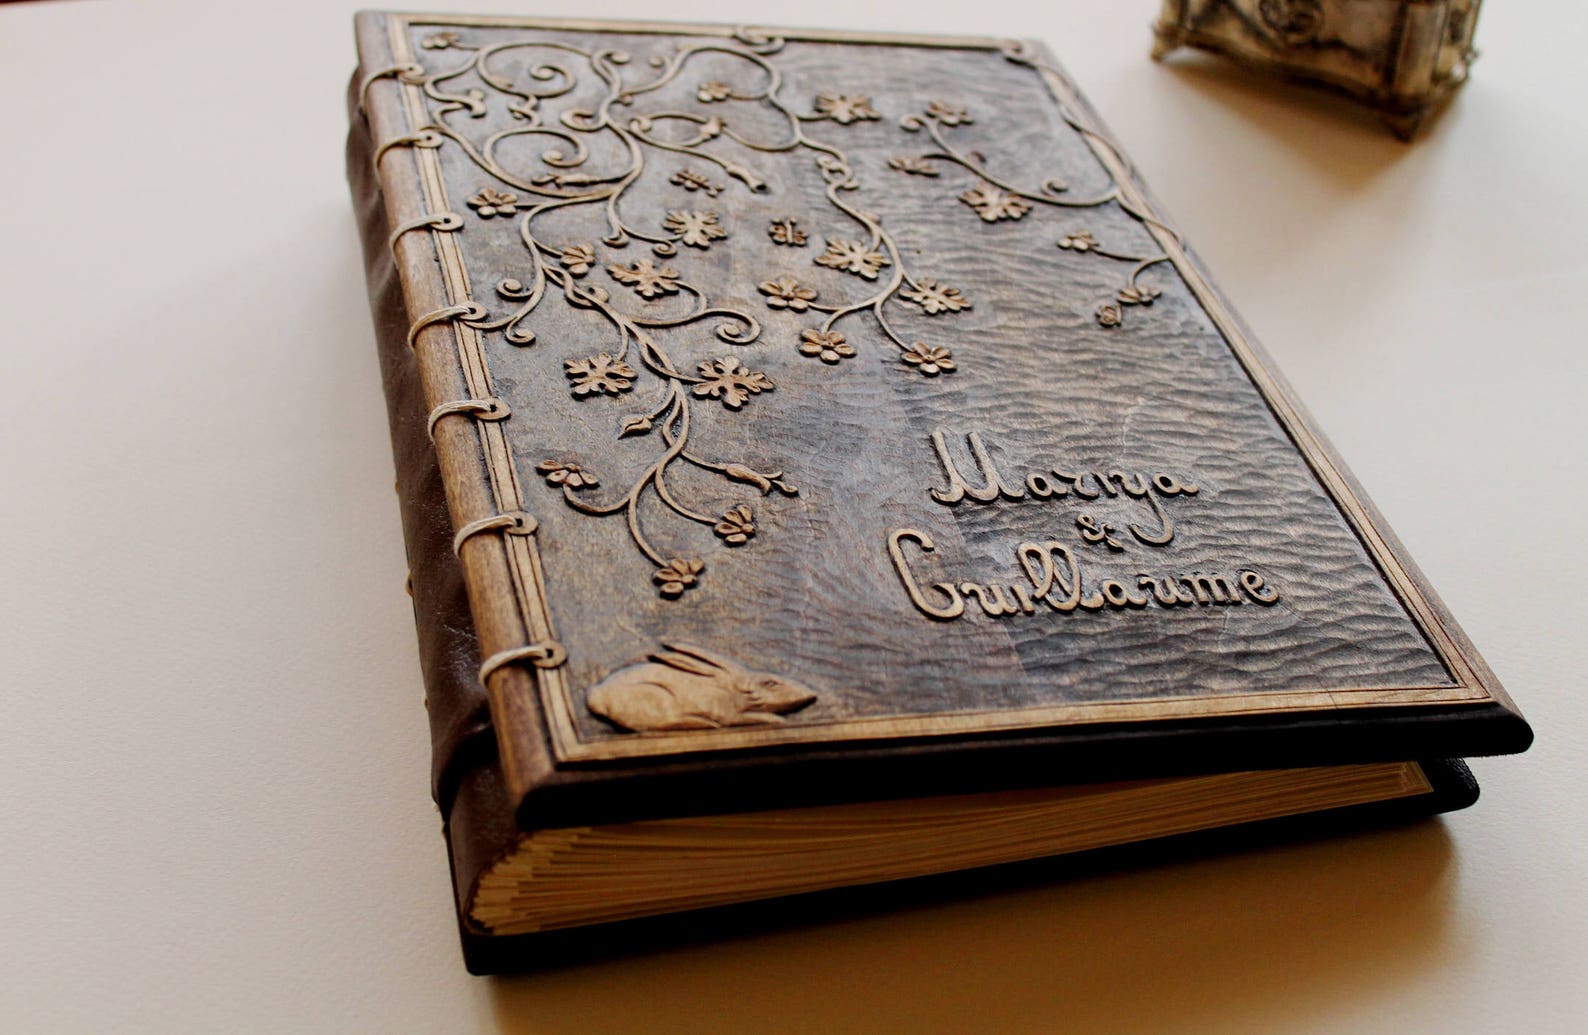 Mariya
&
Guillaume